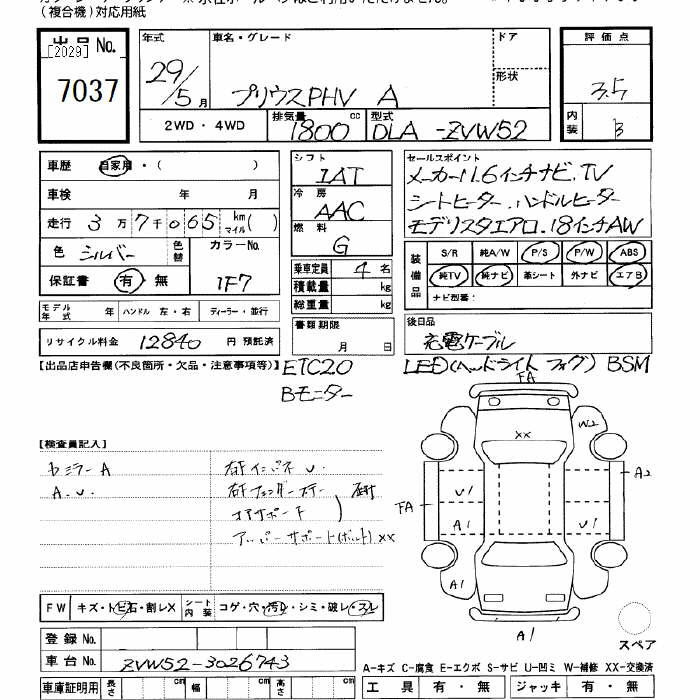 (複合機)対応用紙
出品 No.
[2029]
7037
年式
29/5月
車名・グレード
プリウスPHV A
ドア
形状
評価点
3.5
内装
B
2WD・4WD
排気量
1800cc
型式
DLA-ZVW52
車歴 自家用・( )
車検 年 月
走行 3万7千065 km マイル( )
色 シルバー 色替
カラーNo. 1F7
保証書 有・無
モデル年式 年 ハンドル 左・右 ディーラー・並行
リサイクル料金 12840 円 預託済
シフト
IAT
冷房
AAC
燃料
G
乗車定員 4名
積載量 kg
総重量 kg
書類期限
月 日
セールスポイント
メーカー11.6インチナビ.TV
シートヒーター.ハンドルヒーター
モデリスタエアロ.18インチAW
装備品
S/R 純A/W P/S P/W ABS
純TV 純ナビ 革シート 外ナビ エアB
ナビ型番:
後日品
充電ケーブル
【出品店申告欄(不良箇所・欠品・注意事項等)】
ETC2.0
LED(ヘッドライト フォグ) BSM
Bモニター
【検査員記入】
セミラーA
A.U.
右F インパネ U.
右F フェンダーステー
コアサポート
アッパーサポート(ボルト)XX
FA
XX
W2
A2
U1
FA
A1
U1
A1
A1
スペア
FW キズ・トビ石・割レX
シート内装 コゲ・穴・汚レ・シミ・破レ・スレ
登録 No.
車台 No. ZVW52-3026743
車庫証明用 長さ cm 幅 cm 高さ cm
A-キズ C-腐食 E-エクボ S-サビ U-凹ミ W-補修 XX-交換済
工具 有・無 ジャッキ 有・無